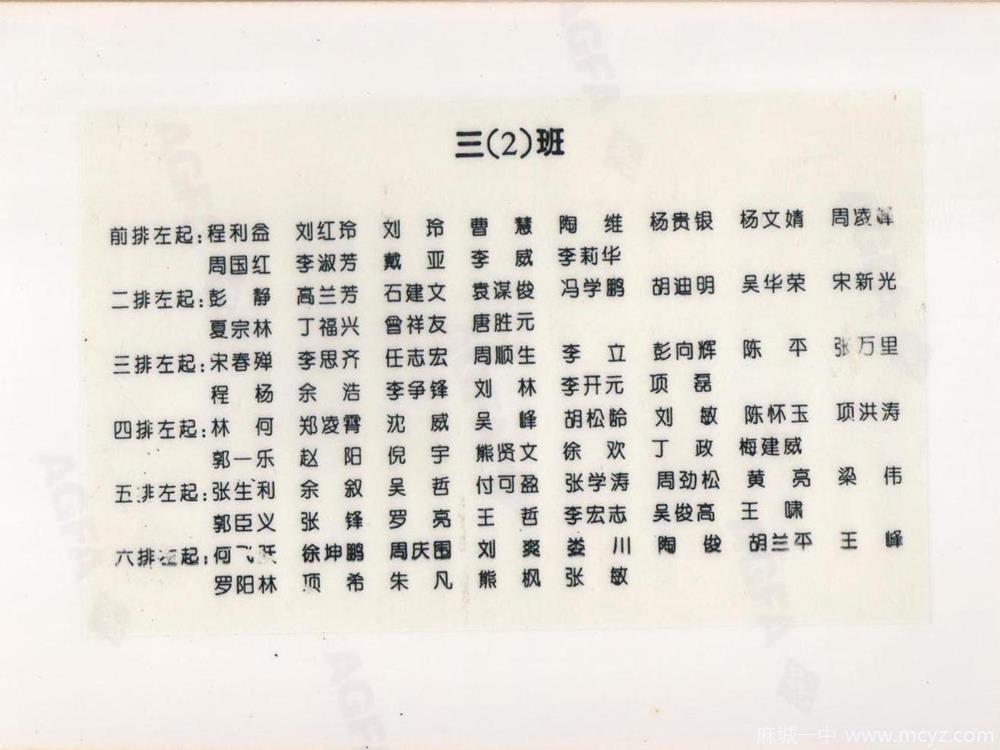 三(2)班
前排左起:程利益 刘红玲 刘玲 曹慧 陶维 杨贵银 杨文婧 周凌峰
周国红 李淑芳 戴亚 李威 李莉华
二排左起:彭静 高兰芳 石建文 袁谋俊 冯学鹏 胡迪明 吴华荣 宋新光
夏宗林 丁福兴 曾祥友 唐胜元
三排左起:宋春殚 李思齐 任志宏 周顺生 李立 彭向辉 陈平 张万里
程杨 余浩 李争锋 刘林 李开元 项磊
四排左起:林何 郑凌霄 沈威 吴峰 胡松龄 刘敏 陈怀玉 项洪涛
郭一乐 赵阳 倪宇 熊贤文 徐欢 丁政 梅建威
五排左起:张生利 余叙 吴哲 付可盈 张学涛 周劲松 黄亮 梁伟
郭臣义 张锋 罗亮 王哲 李宏志 吴俊高 王啸
六排左起:何飞跃 徐坤鹏 周庆围 刘爽 娄川 陶俊 胡兰平 王峰
罗阳林 项希 朱凡 熊枫 张敏
AGFA
麻城一中 www.mcyz.com